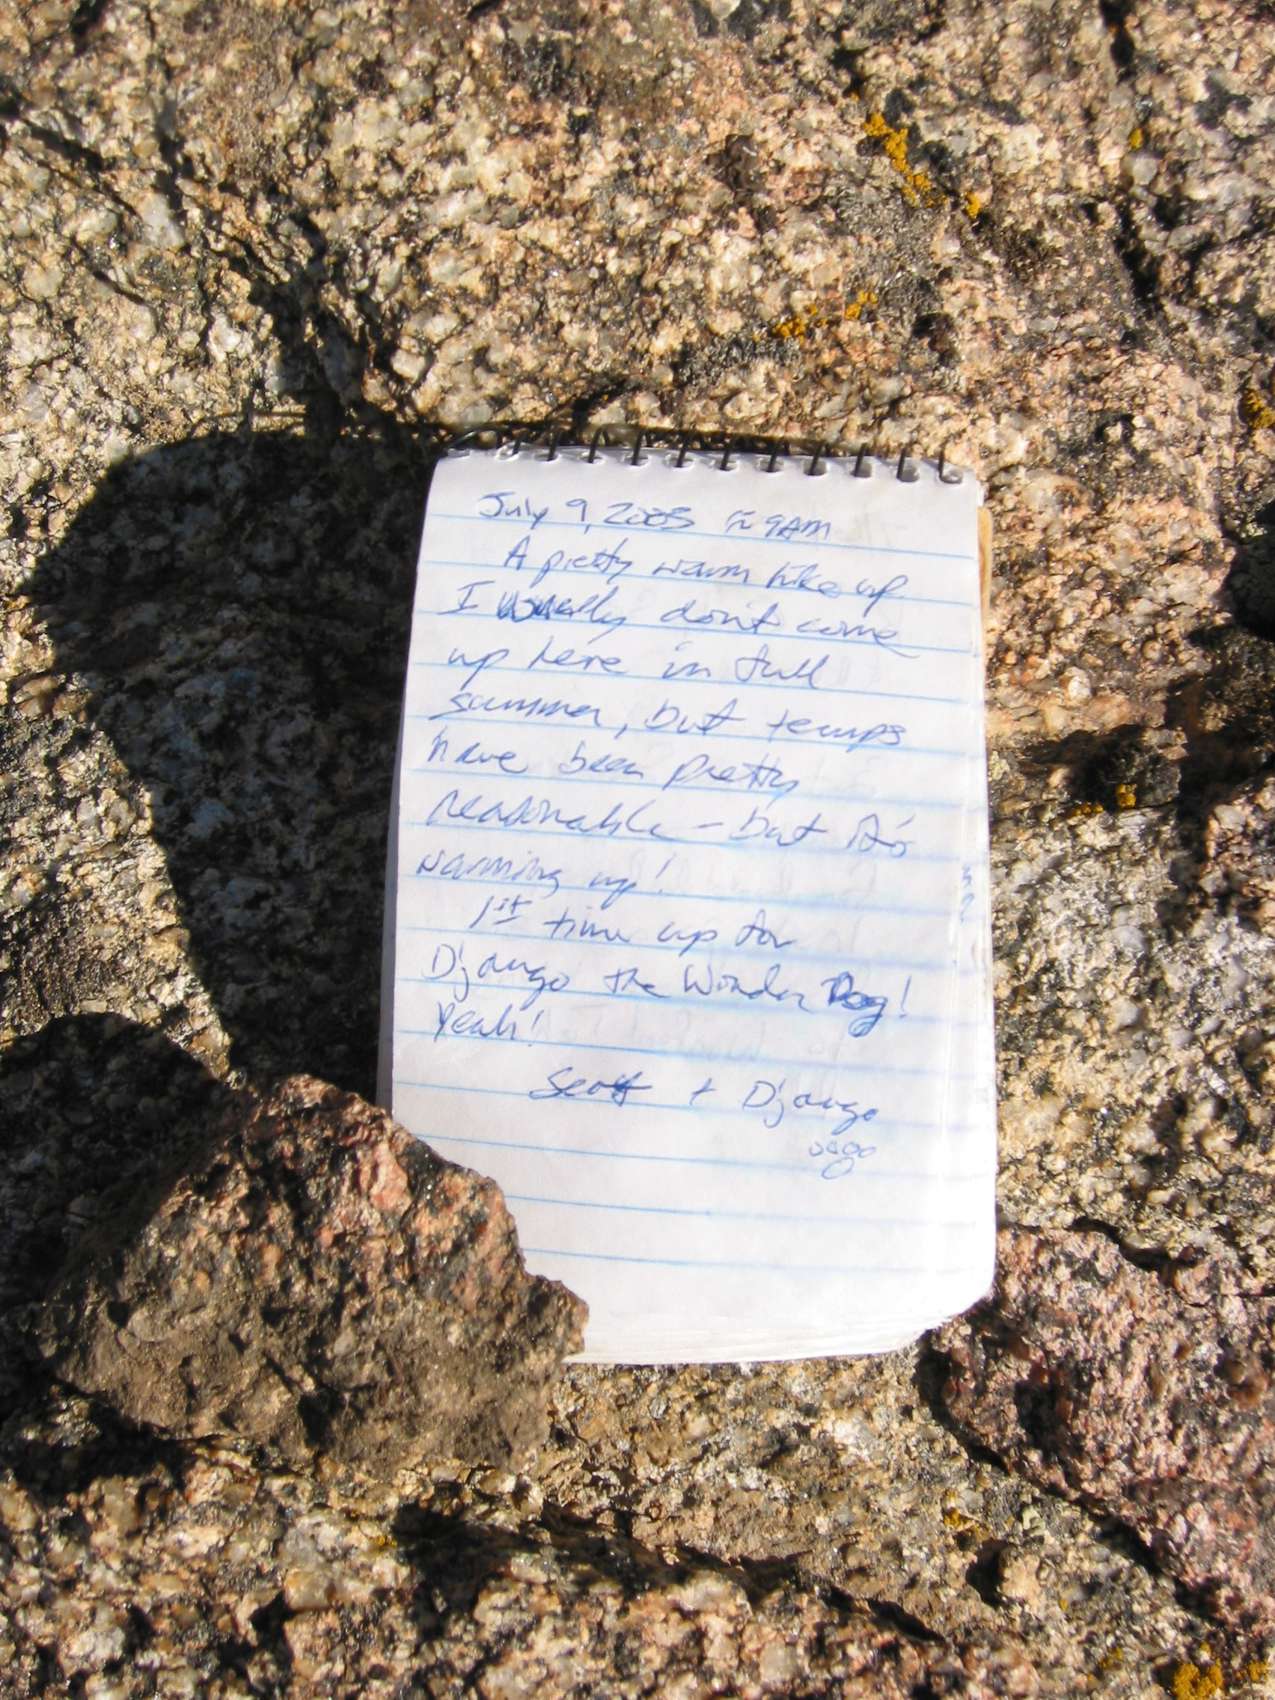 July 9, 2005 9AM
A pretty warm hike up
I usually don't come
up here in full
summer, but temps
have been pretty
reasonable – but it's
warming up!
1st time up for
Django the Wonder Dog!
Yeah!
Scott + Django